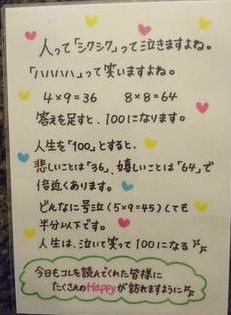 人って「シクシク」って泣きますよね。
「ハハハハ」って笑いますよね。
4×9=36　8×8=64
答えを足すと、100になります。
人生を「100」とすると、
悲しいことは「36」、嬉しいことは「64」で
倍近くあります。
どんなに号泣(5×9=45)しても
半分以下です。
人生は、泣いて笑って100になる
今日もコレを読んでくれた皆様に
たくさんのHappyが訪れますように